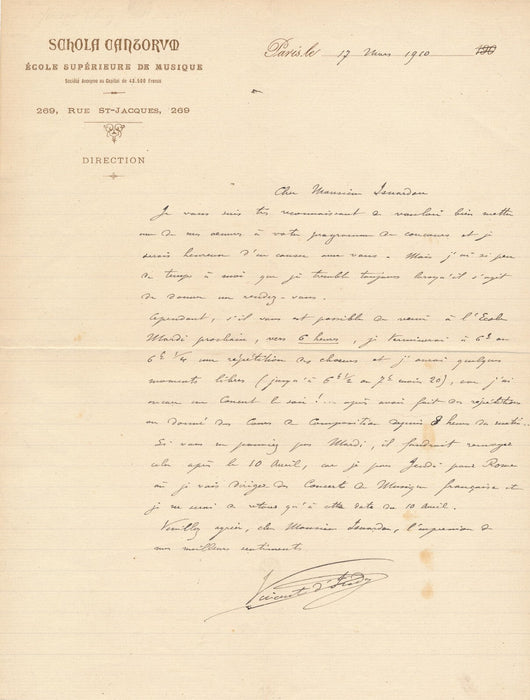 SCHOLA CANTORVM
ÉCOLE SUPÉRIEURE DE MUSIQUE
Société Anonyme au Capital de 48.500 Francs
269, RUE ST-JACQUES, 269
DIRECTION
Paris, le 17 Mars 1910 190
Cher Monsieur Isnardon
Je vous suis très reconnaissant de vouloir bien mettre
une de mes œuvres à votre programme de concours et je
serais heureux d'en causer avec vous - Mais j'ai si peu
de temps à moi que je tremble toujours lorsqu'il s'agit
de donner un rendez-vous.
Cependant, s'il vous est possible de venir à l'Ecole
Mardi prochain, vers 6 heures, je terminerai à 6h ou
6h 1/4 une répétition des chœurs et j'aurai quelques
moments libres (jusqu'à 6h 1/2 ou 7h moins 20), car j'ai
encore un Concert le soir!... après avoir fait des répétitions
ou donné des Cours de Composition depuis 8 heures du matin...
Si vous ne pouviez pas Mardi, il faudrait remettre
cela après le 10 Avril, car je pars Jeudi pour Rome
où je vais diriger des Concerts de Musique française et
je ne serai de retour qu'à cette date du 10 Avril.
Veuillez agréer, cher Monsieur Isnardon, l'expression de
mes meilleurs sentiments
Vincent d'Indy